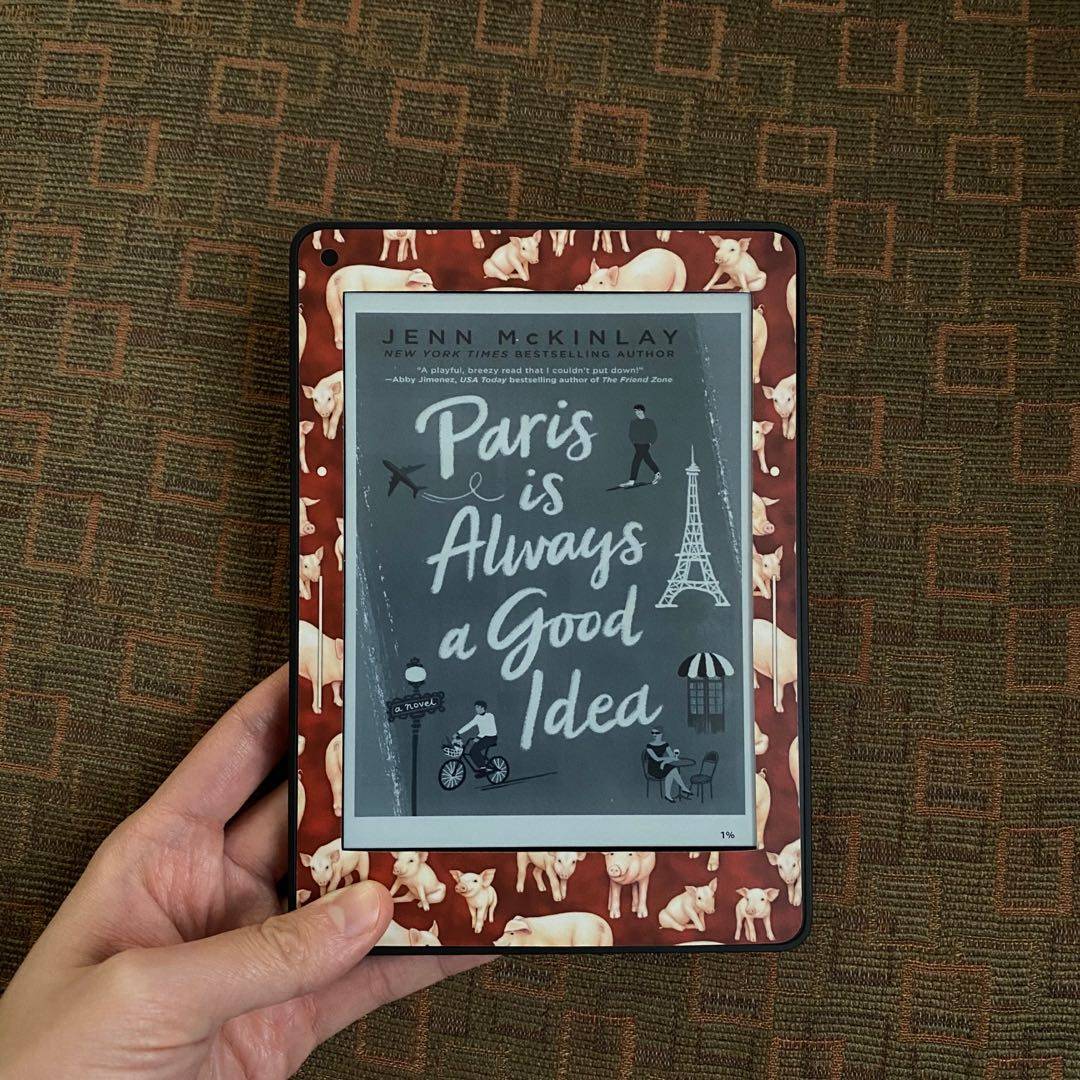 JENN McKINLAY
NEW YORK TIMES BESTSELLING AUTHOR
"A playful, breezy read that I couldn't put down!"
—Abby Jimenez, USA Today bestselling author of The Friend Zone
Paris
is
Always
a Good
Idea
a novel
1%